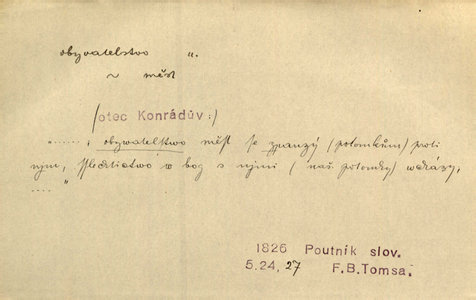 obyvatelstvo ".
~ měst
(otec Konrádův:)
"......; obyvatelstvo měst se (potomkům) proti
nim, šlechtictvo w bog s nimi (naš. potomky) wcházý,
...."
1826 Poutník slov.
5.24,27 F.B.Tomsa.